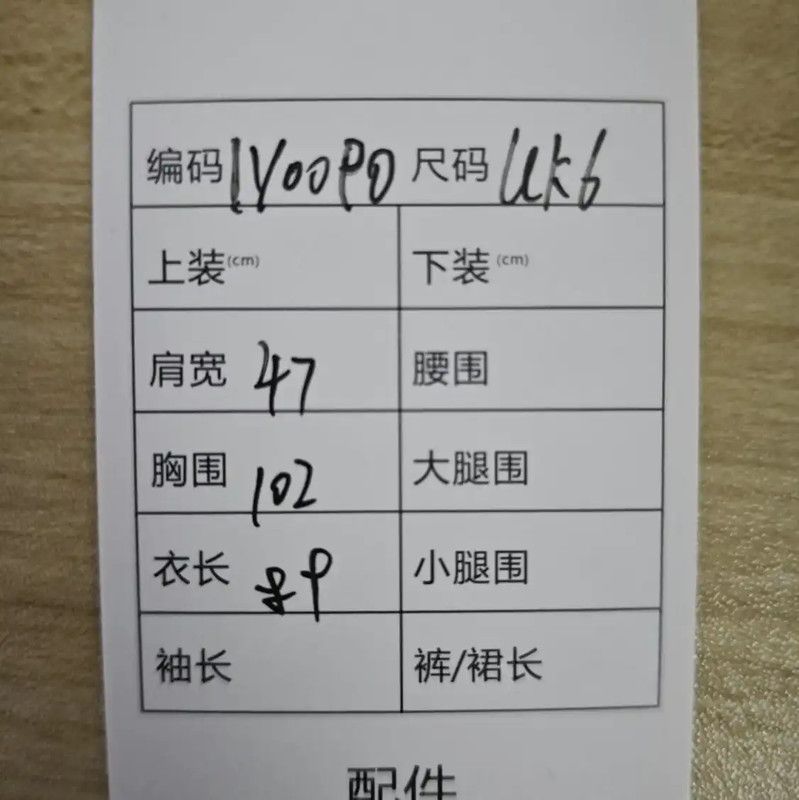 编码 1Y00P0 尺码 UK6
上装(cm) 下装(cm)
肩宽 47 腰围
胸围 102 大腿围
衣长 小腿围
袖长 裤/裙长
配件